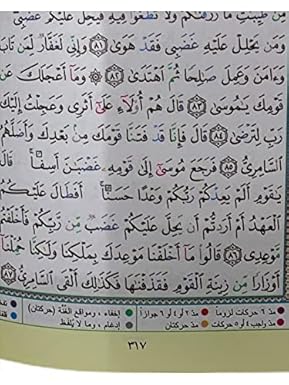 مِن طَيِّبَٰتِ مَا رَزَقْنَٰكُمْ وَلَا تَطْغَوْا۟ فِيهِ فَيَحِلَّ عَلَيْكُمْ
وَمَن يَحْلِلْ عَلَيْهِ غَضَبِى فَقَدْ هَوَىٰ ٨١ وَإِنِّى لَغَفَّارٌ لِّمَن تَابَ
وَءَامَنَ وَعَمِلَ صَٰلِحًا ثُمَّ ٱهْتَدَىٰ ٨٢ ۞ وَمَآ أَعْجَلَكَ عَن
قَوْمِكَ يَٰمُوسَىٰ ٨٣ قَالَ هُمْ أُو۟لَآءِ عَلَىٰٓ أَثَرِى وَعَجِلْتُ إِلَيْكَ
رَبِّ لِتَرْضَىٰ ٨٤ قَالَ فَإِنَّا قَدْ فَتَنَّا قَوْمَكَ مِنۢ بَعْدِكَ وَأَضَلَّهُمُ
ٱلسَّامِرِىُّ ٨٥ فَرَجَعَ مُوسَىٰٓ إِلَىٰ قَوْمِهِۦ غَضْبَٰنَ أَسِفًا ۚ قَالَ
يَٰقَوْمِ أَلَمْ يَعِدْكُمْ رَبُّكُمْ وَعْدًا حَسَنًا ۚ أَفَطَالَ عَلَيْكُمُ
ٱلْعَهْدُ أَمْ أَرَدتُّمْ أَن يَحِلَّ عَلَيْكُمْ غَضَبٌ مِّن رَّبِّكُمْ فَأَخْلَفْتُم
مَّوْعِدِى ٨٦ قَالُوا۟ مَآ أَخْلَفْنَا مَوْعِدَكَ بِمَلْكِنَا وَلَٰكِنَّا حُمِّلْنَآ
أَوْزَارًا مِّن زِينَةِ ٱلْقَوْمِ فَقَذَفْنَٰهَا فَكَذَٰلِكَ أَلْقَى ٱلسَّامِرِىُّ ٨٧
مدّ ٦ حركات لزوماً مدّ ٢ أو ٤ أو ٦ جوازاً إخفاء، ومواقع الغُنَّة (حركتان)
مدّ واجب ٤ أو ٥ حركات مدّ حركتان إدغام، وما لا يُلفَظ
٣١٧